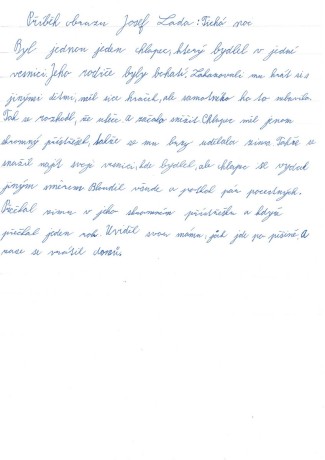 Příběh obrazu Josef Lada: Tichá noc
Byl jednou jeden chlapec, který bydlel v jedné
vesnici. Jeho rodiče byly bohatí. Zakazovali mu hrát si s
jinými dětmi, měl sice hraček, ale samotného ho to nebavilo.
Tak se rozhodl, že uteče a začalo sněžit. Chlapec měl jenom
skromný přístřešek, takže se mu brzy udělala zima. Takže se
snažil najít svoji vesnici, kde bydlel, ale chlapec se vydal
jiným směrem. Bloudil všude a potkal pár pocestných.
Přečkal zimu v jeho skromném přístřešku a když
přečkal jeden rok. Uviděl svou mámu, jak jde po pěšině. A
mohl se vrátit domů.